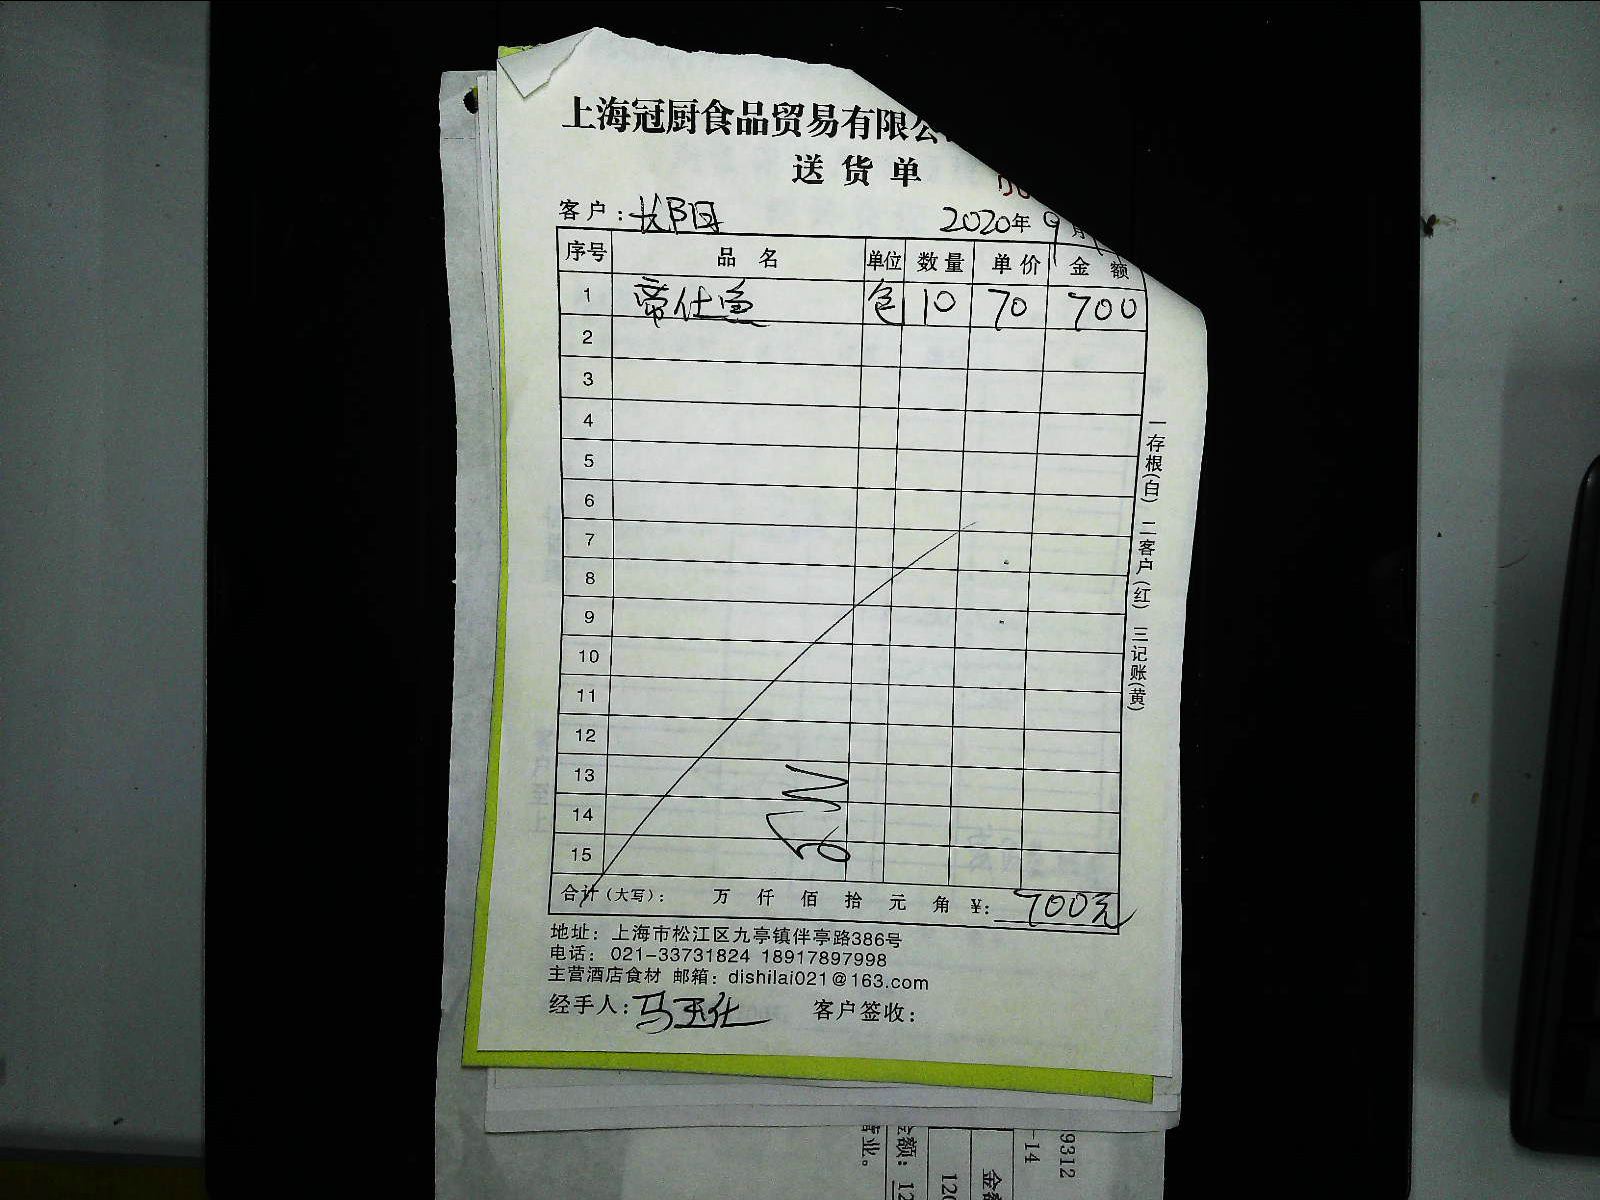 上海冠厨食品贸易有限公
送货单
客户：长阳
2020年 9月
序号 品名 单位 数量 单价 金额
1 帝仕鱼 包 10 70 700
2
3
4
5
6
7
8
9
10
11
12
13
14
15
合计（大写）： 万 仟 佰 拾 元 角 ¥：700元
一存根(白) 二客户(红) 三记账(黄)
地址：上海市松江区九亭镇伴亭路386号
电话：021-33731824 18917897998
主营酒店食材 邮箱：dishilai021@163.com
经手人：马玉仕 客户签收：
9312
-14
金额：12
营业。